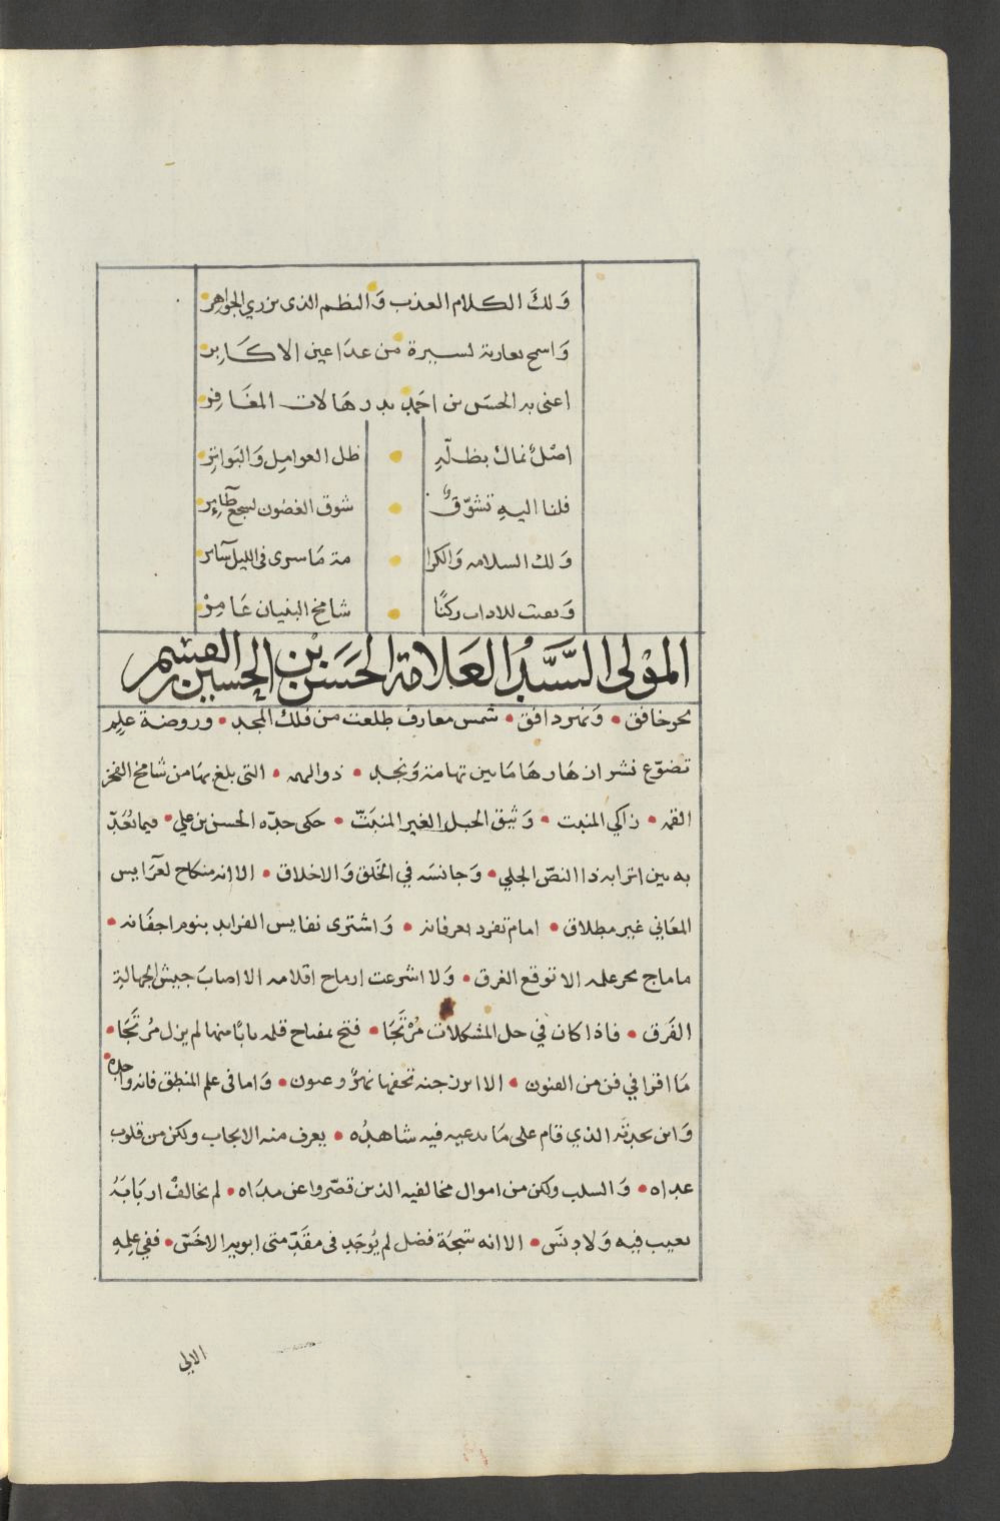 وَلكَ الكلام العذب وَالنظم الذى يزري الجواهِر
وَاسمح بعارية لسيرة من عدَا عين الاكَابِر
اعنى به الحسَن بن احمد بدر هَالات المفَاخِر
اصْلٌ نماك بظلّهِ ظل العوامِل وَالبَواتِر
فلنا اليهِ تشوّقٌ شوق الغصُون لسجع طآئِر
وَلك السلامه وَالكرا مة مَا سرى فى الليل سَاير
وَبعت للاداب ركنًا شامخ البنيان عَامِرْ
المَوْلى السَّيّدُ العَلامَة الحَسَن بْن الحسين بن القسم
بحر خافق • وَنمرد افق • شمس معارف طلعت من فلك المجد • وروضة علِم
تضوّع نشر ازهَارهَا مَا بين تهامة وَنجد • ذو الهمه • التى بلغ بهَا من شامخ الفخر
القمه • زاكي المنبت • وَثيق الحبل الغير المنبَتّ • حكى جدّه الحسن بن علي • فيما نُعَدّ
به بين اترابه ذا النصّ الجلي • وَجانسَه في الخَلق وَالاخلاق • الا انه منكاح لعرَايس
المعَاني غير مطلاق • امام تفرد بعرفانه • وَاشترى نفايس الفرايد بنوم اجفَانه •
ما ماج بحر علمه الا توقع الغرق • وَلا اشرعت ارماح اقلامه الا اصابَ جيش الجهالة
الفَرق • فاذا كان في حل المشكلات مُرْتَجًا • فتح بمفتاح قلمه بابًا منها لم يزل مُرتَجًا •
مَا اقرا في فن من الفنون • الا ابرز جنه تحفها نهرٌ وعيون • وَاما فى علم المنطق فانه واحده
وَابن بجدتَه الذي قام على مَا يدعيه فيه شاهدُه • يعرف منه الايجاب ولكن من قلوب
عداه • وَالسلب ولكن من اموال مخالفيه الذين قصّروا عن مدَاه • لم يخالف اربَابَهُ
بعيب فيه وَلا دنسَ • الا انه نتيجَة فضل لم يُوجَد فى مقَدّمتى ابويه الاخَسّ • ففي علمِهِ
الالي